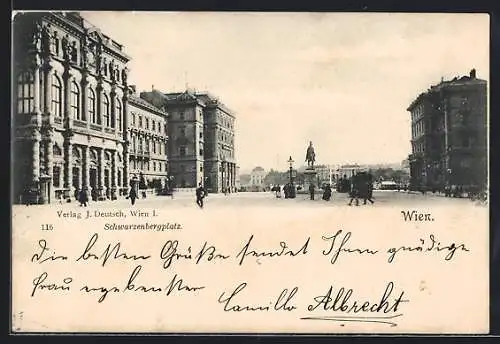 Verlag J. Deutsch, Wien I.
116 Schwarzenbergplatz.
Wien.
die besten Grüße sendet Ihnen gnädige
Frau ergebenster
Camillo Albrecht